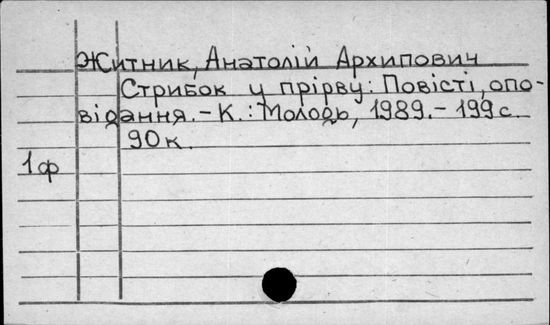 Житник, Анатолій Архипович
Стрибок у прірву: Повісті, опо-
відання. – К.: Молодь, 1989. – 199 с.
90 к.
1ф